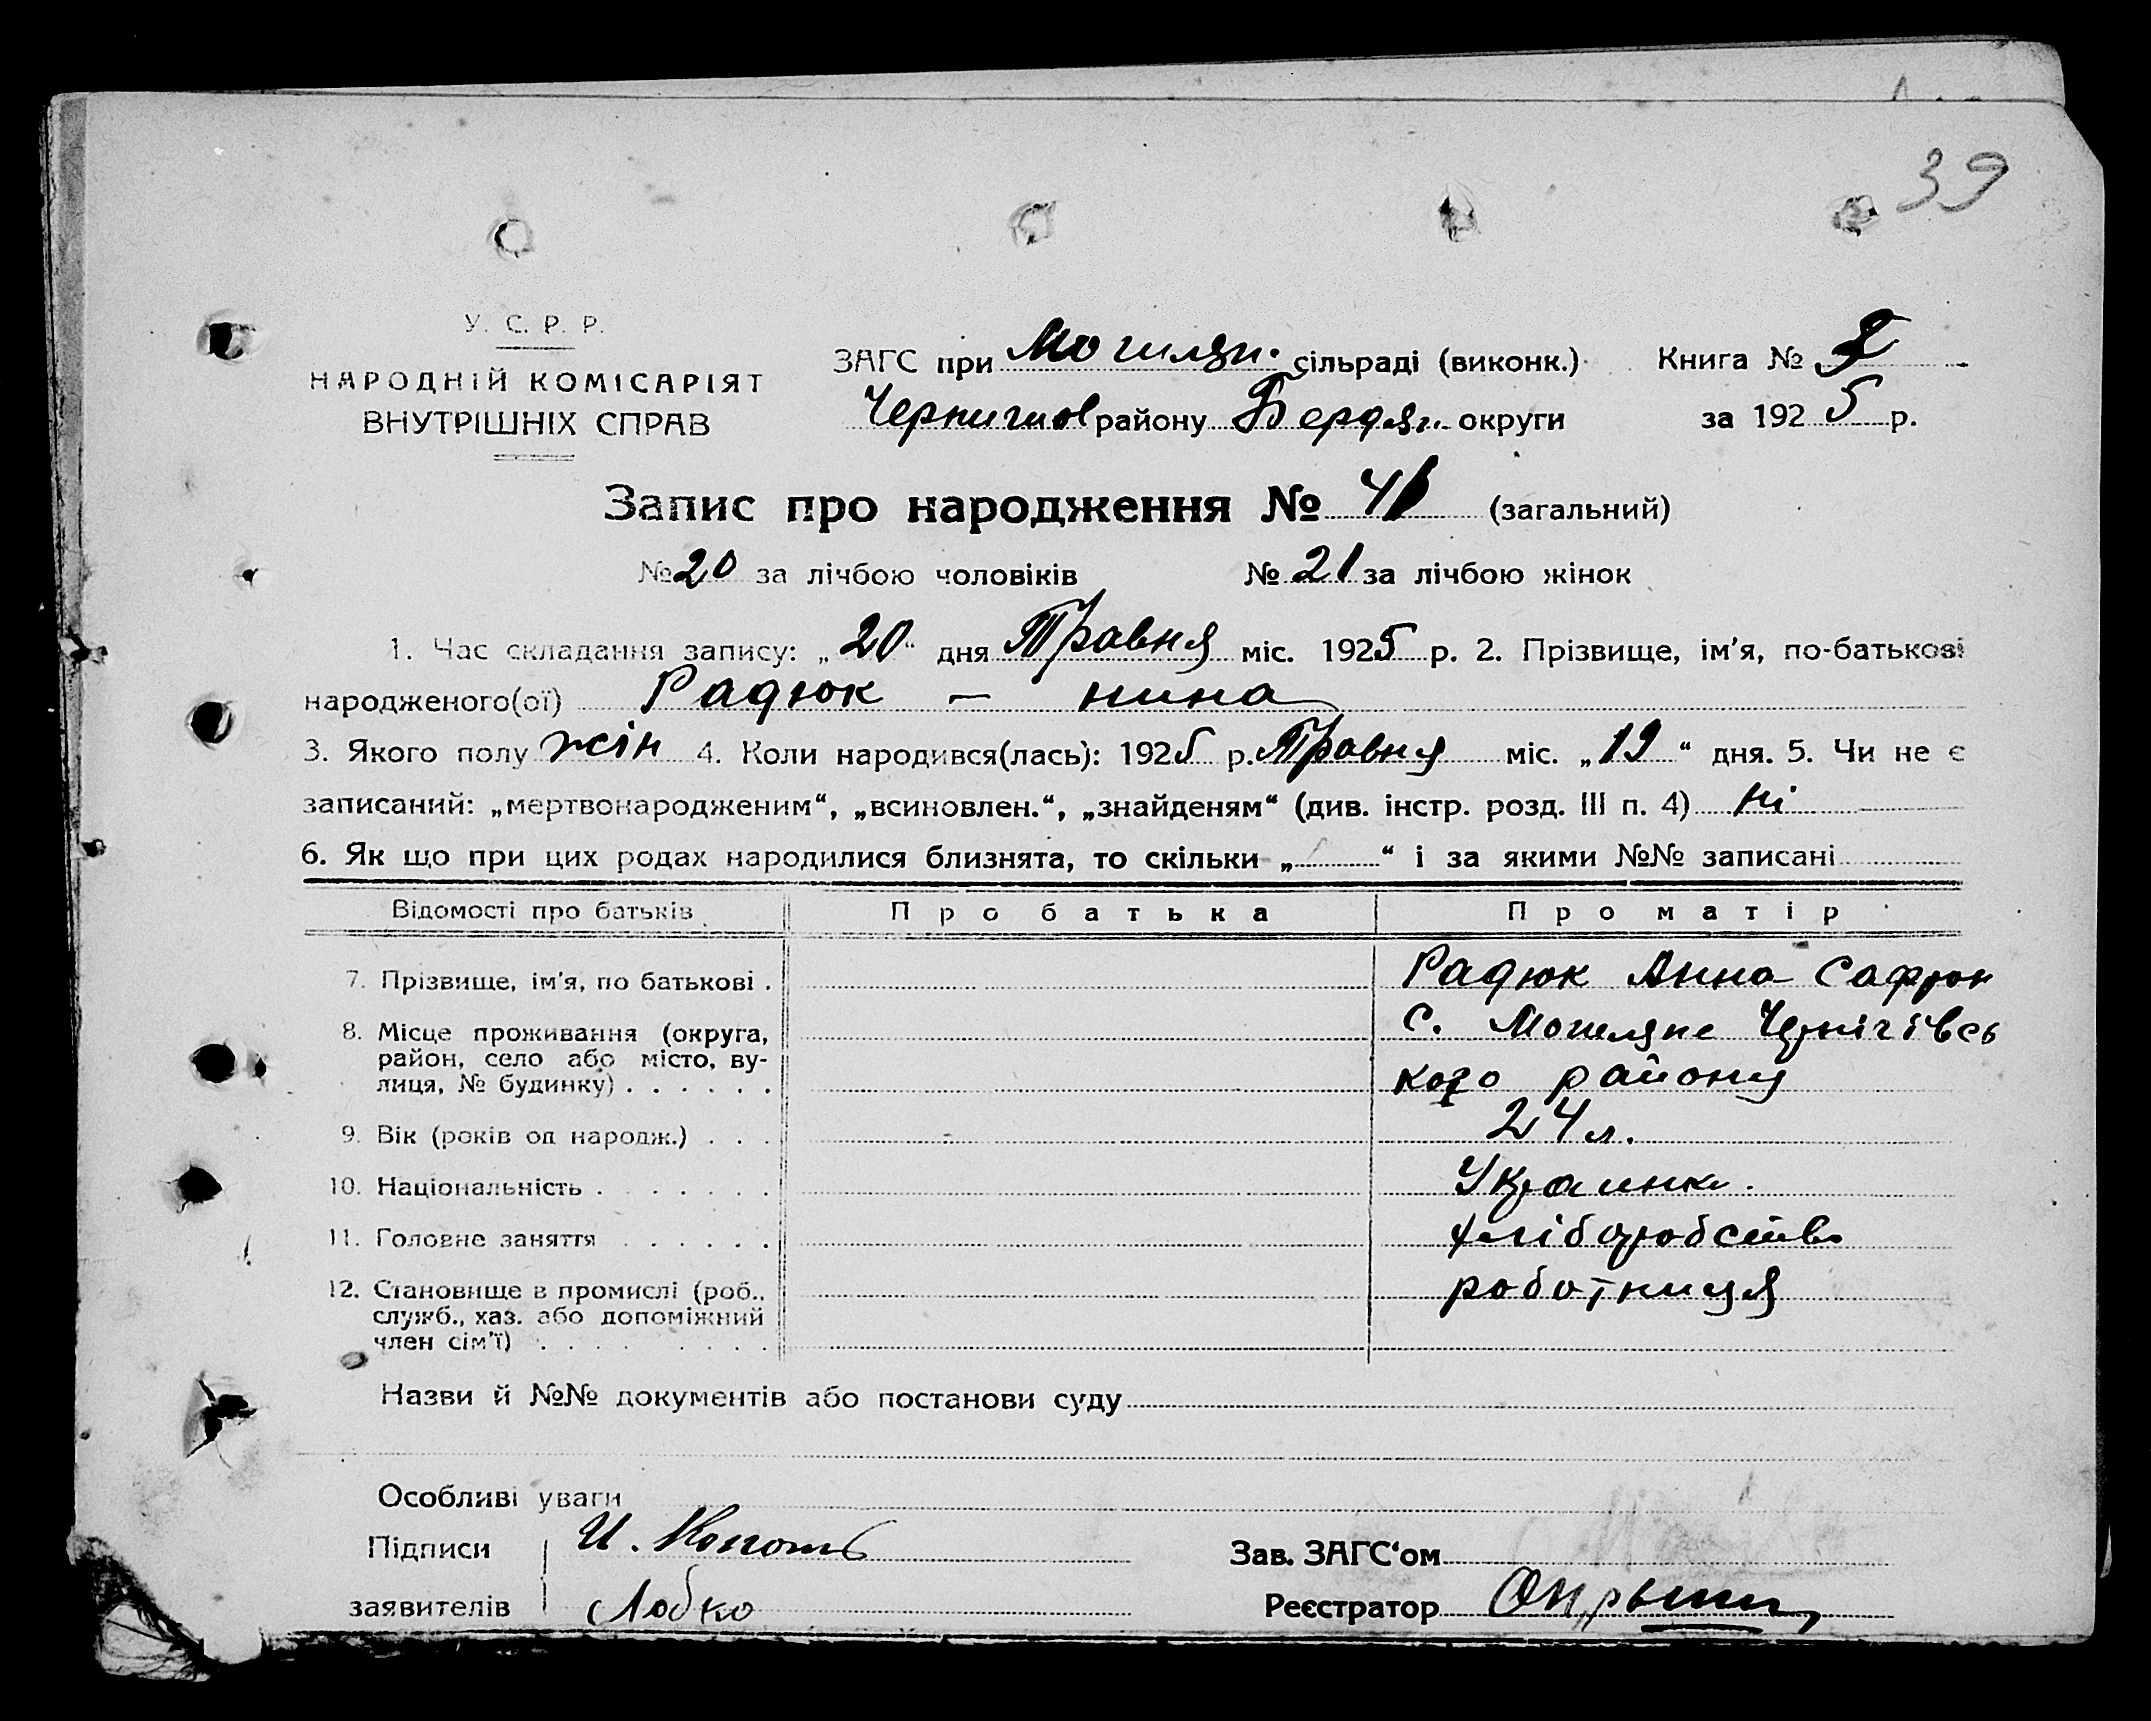 39
У. С. Р. Р.
НАРОДНІЙ КОМІСАРІЯТ
ВНУТРІШНІХ СПРАВ
ЗАГС при Могилян. сільраді (виконк.) Книга №
Чернигов району Бердян. округи за 1925 р.
Запис про народження № 41 (загальний)
№ 20 за лічбою чоловіків № 21 за лічбою жінок
1. Час складання запису: „20“ дня Травня міс. 1925 р. 2. Прізвище, ім'я, по-батькові
народженого(ої) Радюк – нина
3. Якого полу жін 4. Коли народився(лась): 1925 р. Травня міс. „19“ дня. 5. Чи не є
записаний: „мертвонародженим“, „всиновлен.“, „знайденям“ (див. інстр. розд. III п. 4) ні
6. Як що при цих родах народилися близнята, то скільки „ “ і за якими №№ записані
Відомості про батьків Про батька Про матір
7. Прізвище, ім'я, по батькові . Радюк Анна Сафрон
8. Місце проживання (округа, с. Могиляне Чернігівсь
район, село або місто, ву-
лиця, № будинку) . . . . . . кого району
9. Вік (років од народж.) . . . 24 л.
10. Національність . . . . . . . Украинка.
11. Головне заняття . . . . . . хліборобство
12. Становище в промислі (роб., роботниця
служб., хаз. або допоміжний
член сім'ї) . . . . . . . . .
Назви й №№ документів або постанови суду
Особливі уваги
Підписи И.
Зав. ЗАГС'ом
заявителів Лобко
Реєстратор